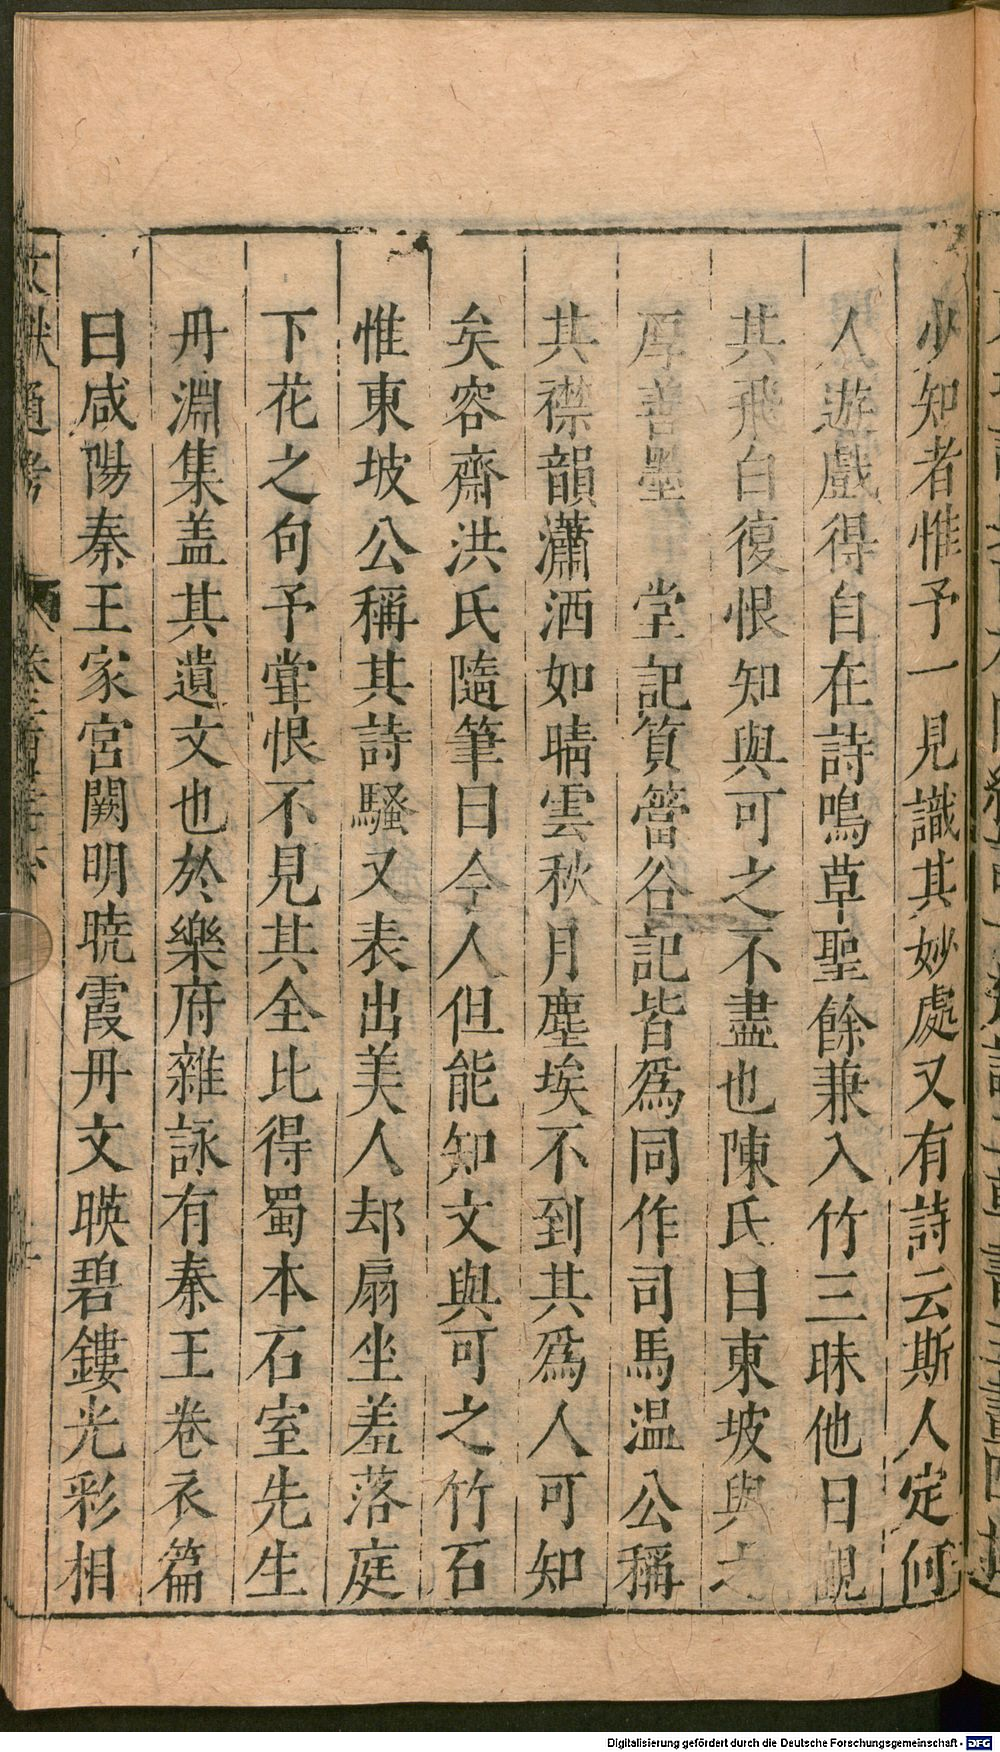 少知者惟予一見識其妙處又有詩云斯人定何
人遊戲得自在詩鳴草聖餘兼入竹三昧他日觀
其飛白復恨知與可之不盡也陳氏曰東坡與
厚善墨 堂記篔簹谷記皆爲同作司馬温公稱
其襟韻瀟洒如晴雲秋月塵埃不到其爲人可知
矣容齋洪氏隨筆曰今人但能知文與可之竹石
惟東坡公稱其詩騷又表出美人却扇坐羞落庭
下花之句予甞恨不見其全比得蜀本石室先生
丹淵集盖其遺文也於樂府雜詠有秦王卷衣篇
曰咸陽秦王家宮闕明曉霞丹文暎碧鏤光彩相
文獻通考
Digitalisierung gefördert durch die Deutsche Forschungsgemeinschaft - DFG